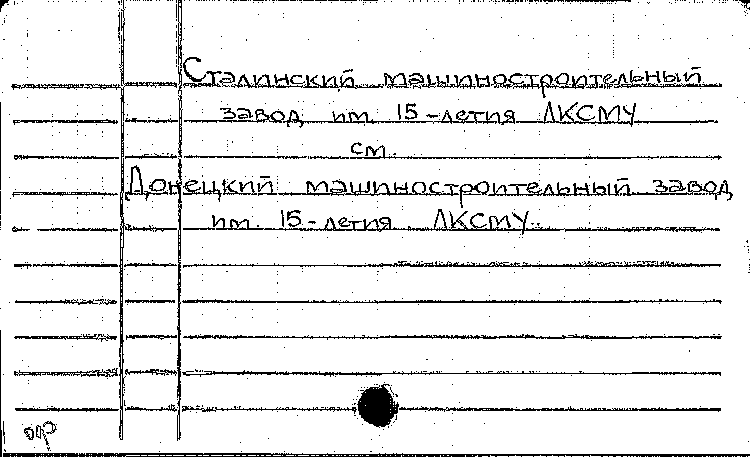 Сталинский машиностроительный
завод им. 15-летия ЛКСМУ
см.
Донецкий машиностроительный завод
им. 15-летия ЛКСМУ.